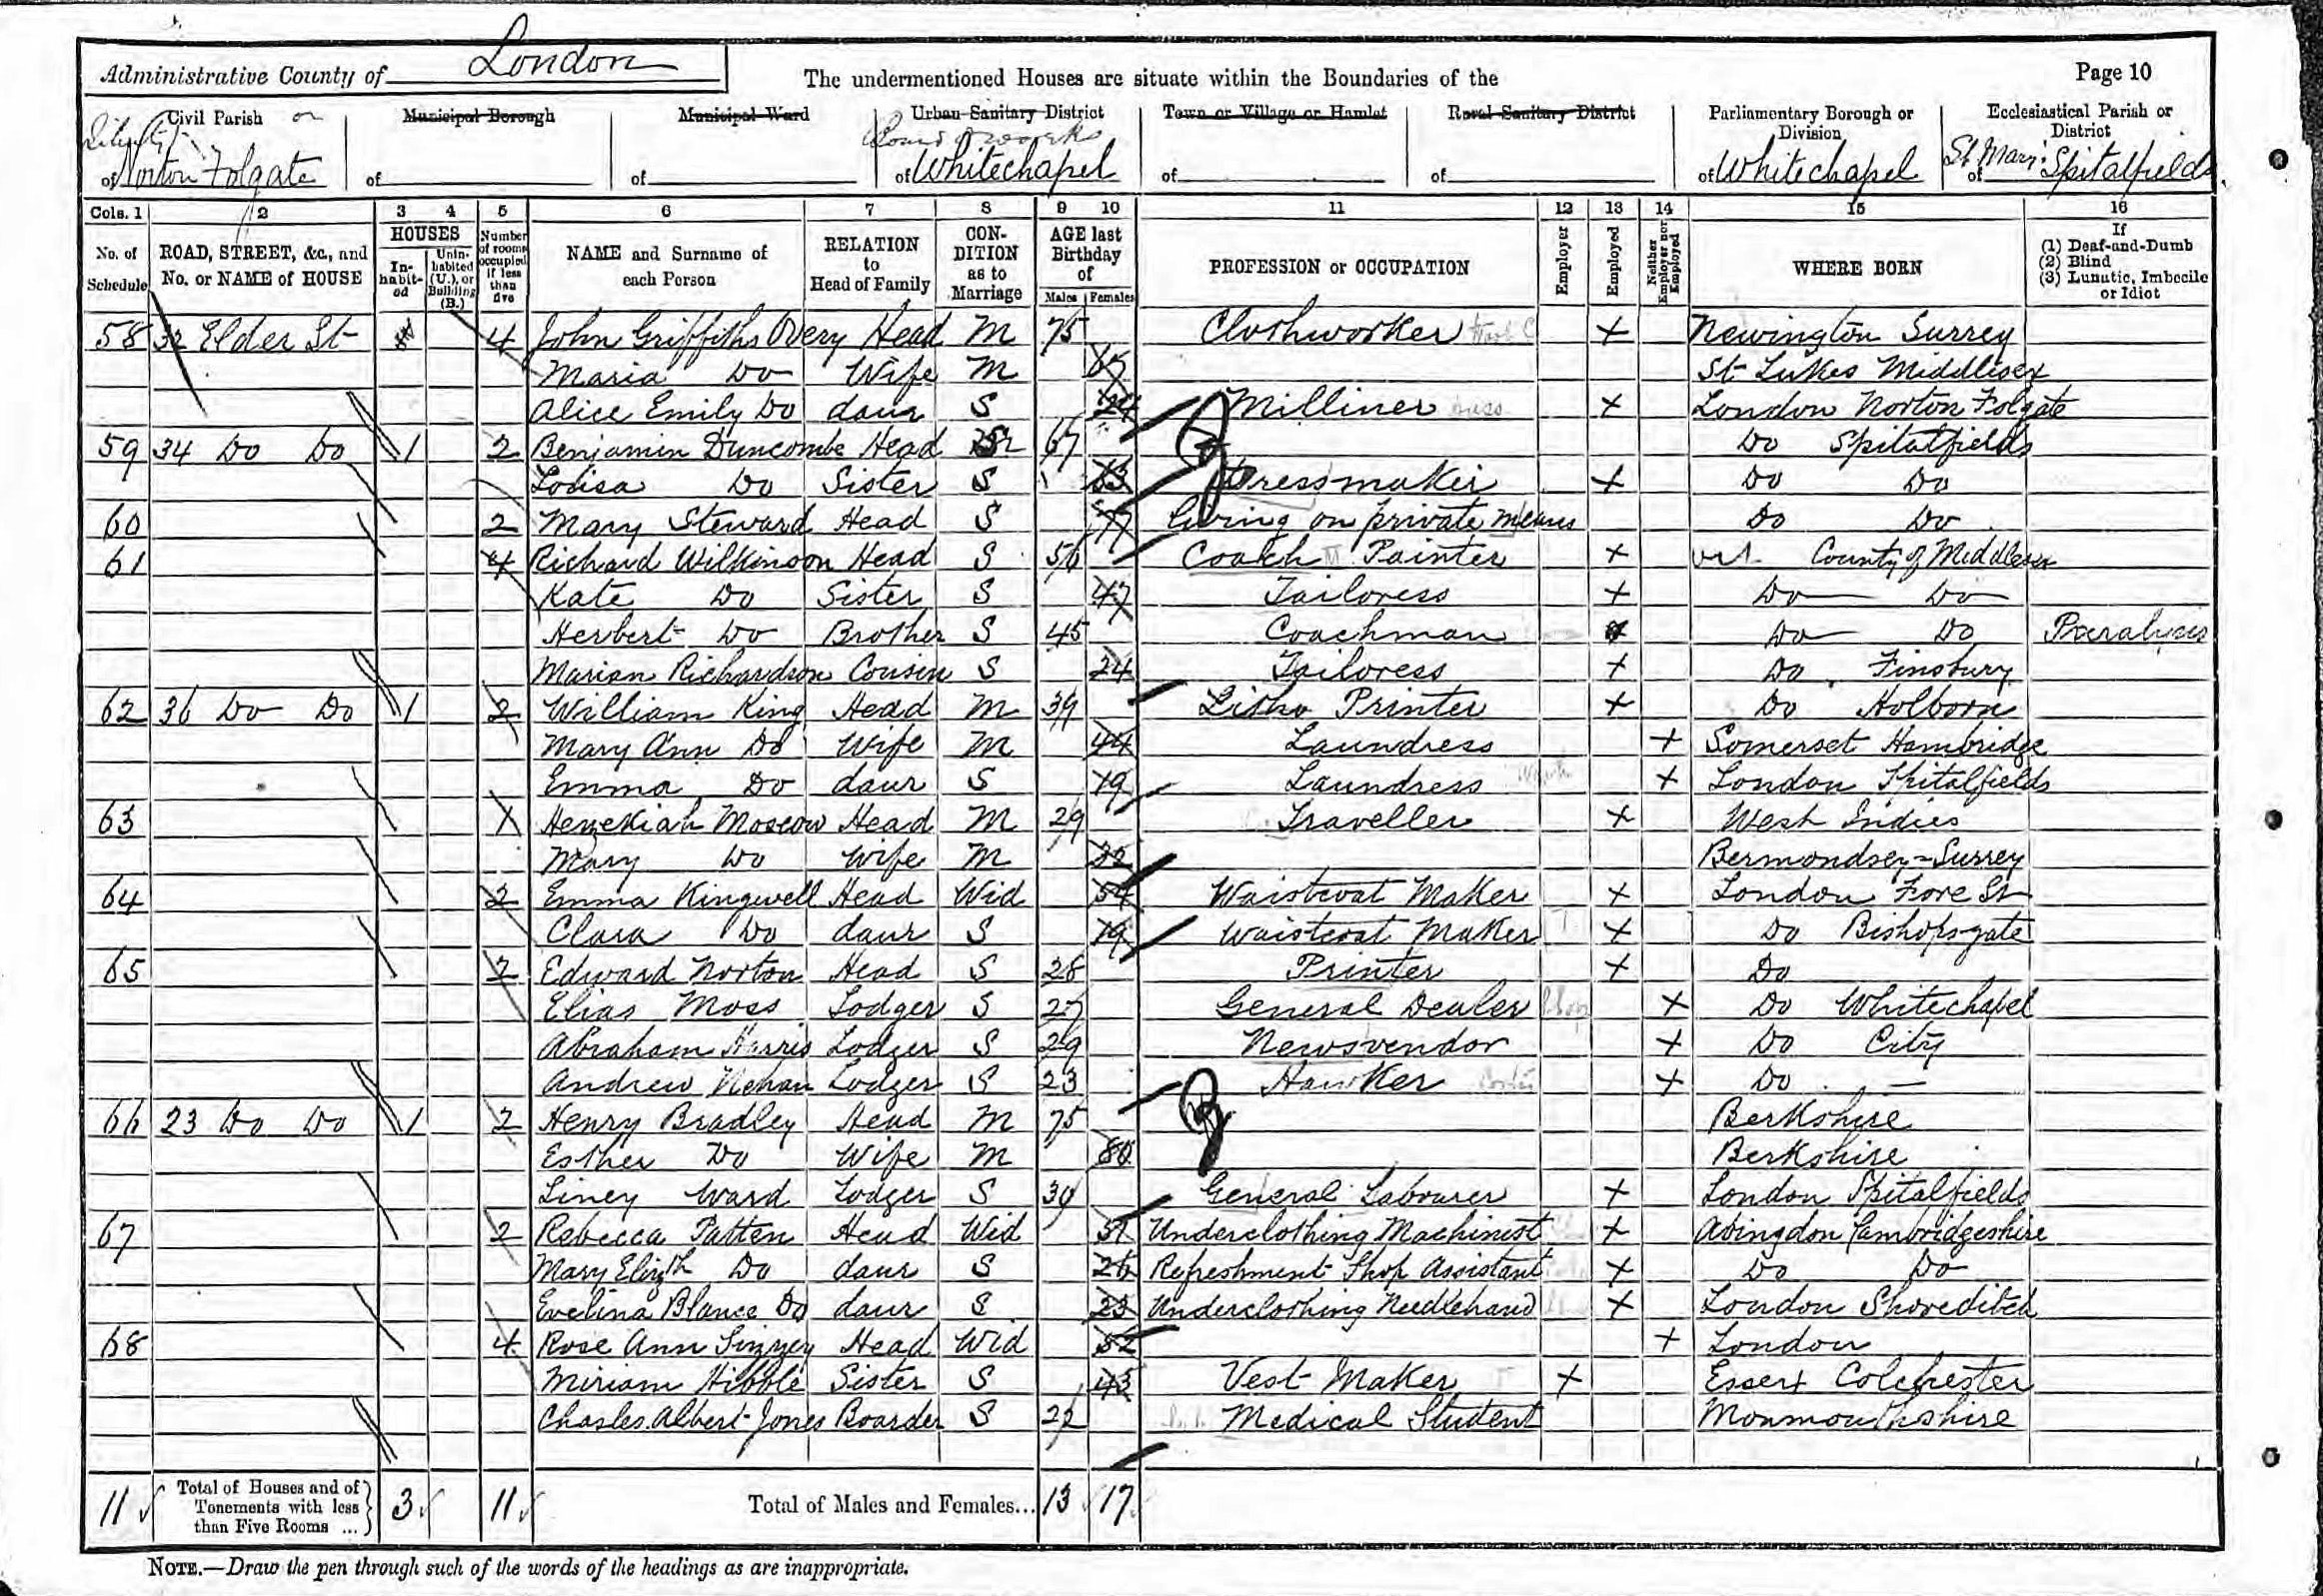 Administrative County of London
The undermentioned Houses are situate within the Boundaries of the
Page 10
Civil Parish or Liberty of Norton Folgate
Municipal Borough of
Municipal Ward of
Urban Sanitary District Board of Works of Whitechapel
Town or Village or Hamlet of
Rural Sanitary District of
Parliamentary Borough or Division of Whitechapel
Ecclesiastical Parish or District of St Mary Spitalfields
Cols. 1 2 3 4 5 6 7 8 9 10 11 12 13 14 15 16
No. of Schedule
ROAD, STREET, &c., and No. or NAME of HOUSE
HOUSES
In-habit-ed
Unin-habited (U.), or Building (B.)
Number of rooms occupied if less than five
NAME and Surname of each Person
RELATION to Head of Family
CON-DITION as to Marriage
AGE last Birthday of
Males Females
PROFESSION or OCCUPATION
Employer
Employed
Neither Employer nor Employed
WHERE BORN
If
(1) Deaf-and-Dumb
(2) Blind
(3) Lunatic, Imbecile or Idiot
58 32 Elder St 4 John Griffiths Overy Head M 75 Clothworker X Newington Surrey
Maria Do Wife M St Lukes Middlesex
Alice Emily Do daur S 24 Milliner X London Norton Folgate
59 34 Do Do 1 2 Benjamin Duncombe Head 67 Do Spitalfields
Louisa Do Sister S 63 Dressmaker X Do Do
60 2 Mary Steward Head S 77 Living on private Means Do Do
61 4 Richard Wilkinson Head S 56 Coach Painter X County of Middlesex
Kate Do Sister S 47 Tailoress X Do Do
Herbert Do Brother S 45 Coachman Do Do Paralysis
Marian Richardson Cousin S 24 Tailoress X Do Finsbury
62 36 Do Do 1 2 William King Head M 39 Litho Printer X Do Holborn
Mary Ann Do Wife M 44 Laundress X Somerset Hambridge
Emma Do daur S 19 Laundress X London Spitalfields
63 1 Hezekiah Moscow Head M 29 Traveller X West Indies
Mary Do Wife M 22 Bermondsey - Surrey
64 2 Emma Kingwell Head Wid 54 Waistcoat Maker X London Fore St
Clara Do daur S 19 Waistcoat Maker X Do Bishopsgate
65 2 Edward Norton Head S 28 Printer X Do
Elias Moss Lodger S 27 General Dealer X Do Whitechapel
Abraham Harris Lodger S 29 Newsvendor X Do City
Andrew Lodger S 23 Hawker X Do —
66 23 Do Do 1 2 Henry Bradley Head M 75 Berkshire
Esther Do Wife M 80 Berkshire
Ward Lodger S General Labourer X London Spitalfields
67 2 Rebecca Patten Head Wid 51 Underclothing Machinist X Abingdon Cambridgeshire
Mary Elizth Do daur S 26 Refreshment Shop Assistant X Do Do
Evelina Blance Do daur S 23 Underclothing Needlehand X London Shoreditch
68 4 Rose Ann Head Wid 52 X London
Miriam Hibble Sister S 43 Vest Maker X Essex Colchester
Charles Albert Jones Boarder S 22 Medical Student Monmouthshire
11 Total of Houses and of Tenements with less than Five Rooms ... 3 11 Total of Males and Females... 13 17
NOTE.—Draw the pen through such of the words of the headings as are inappropriate.